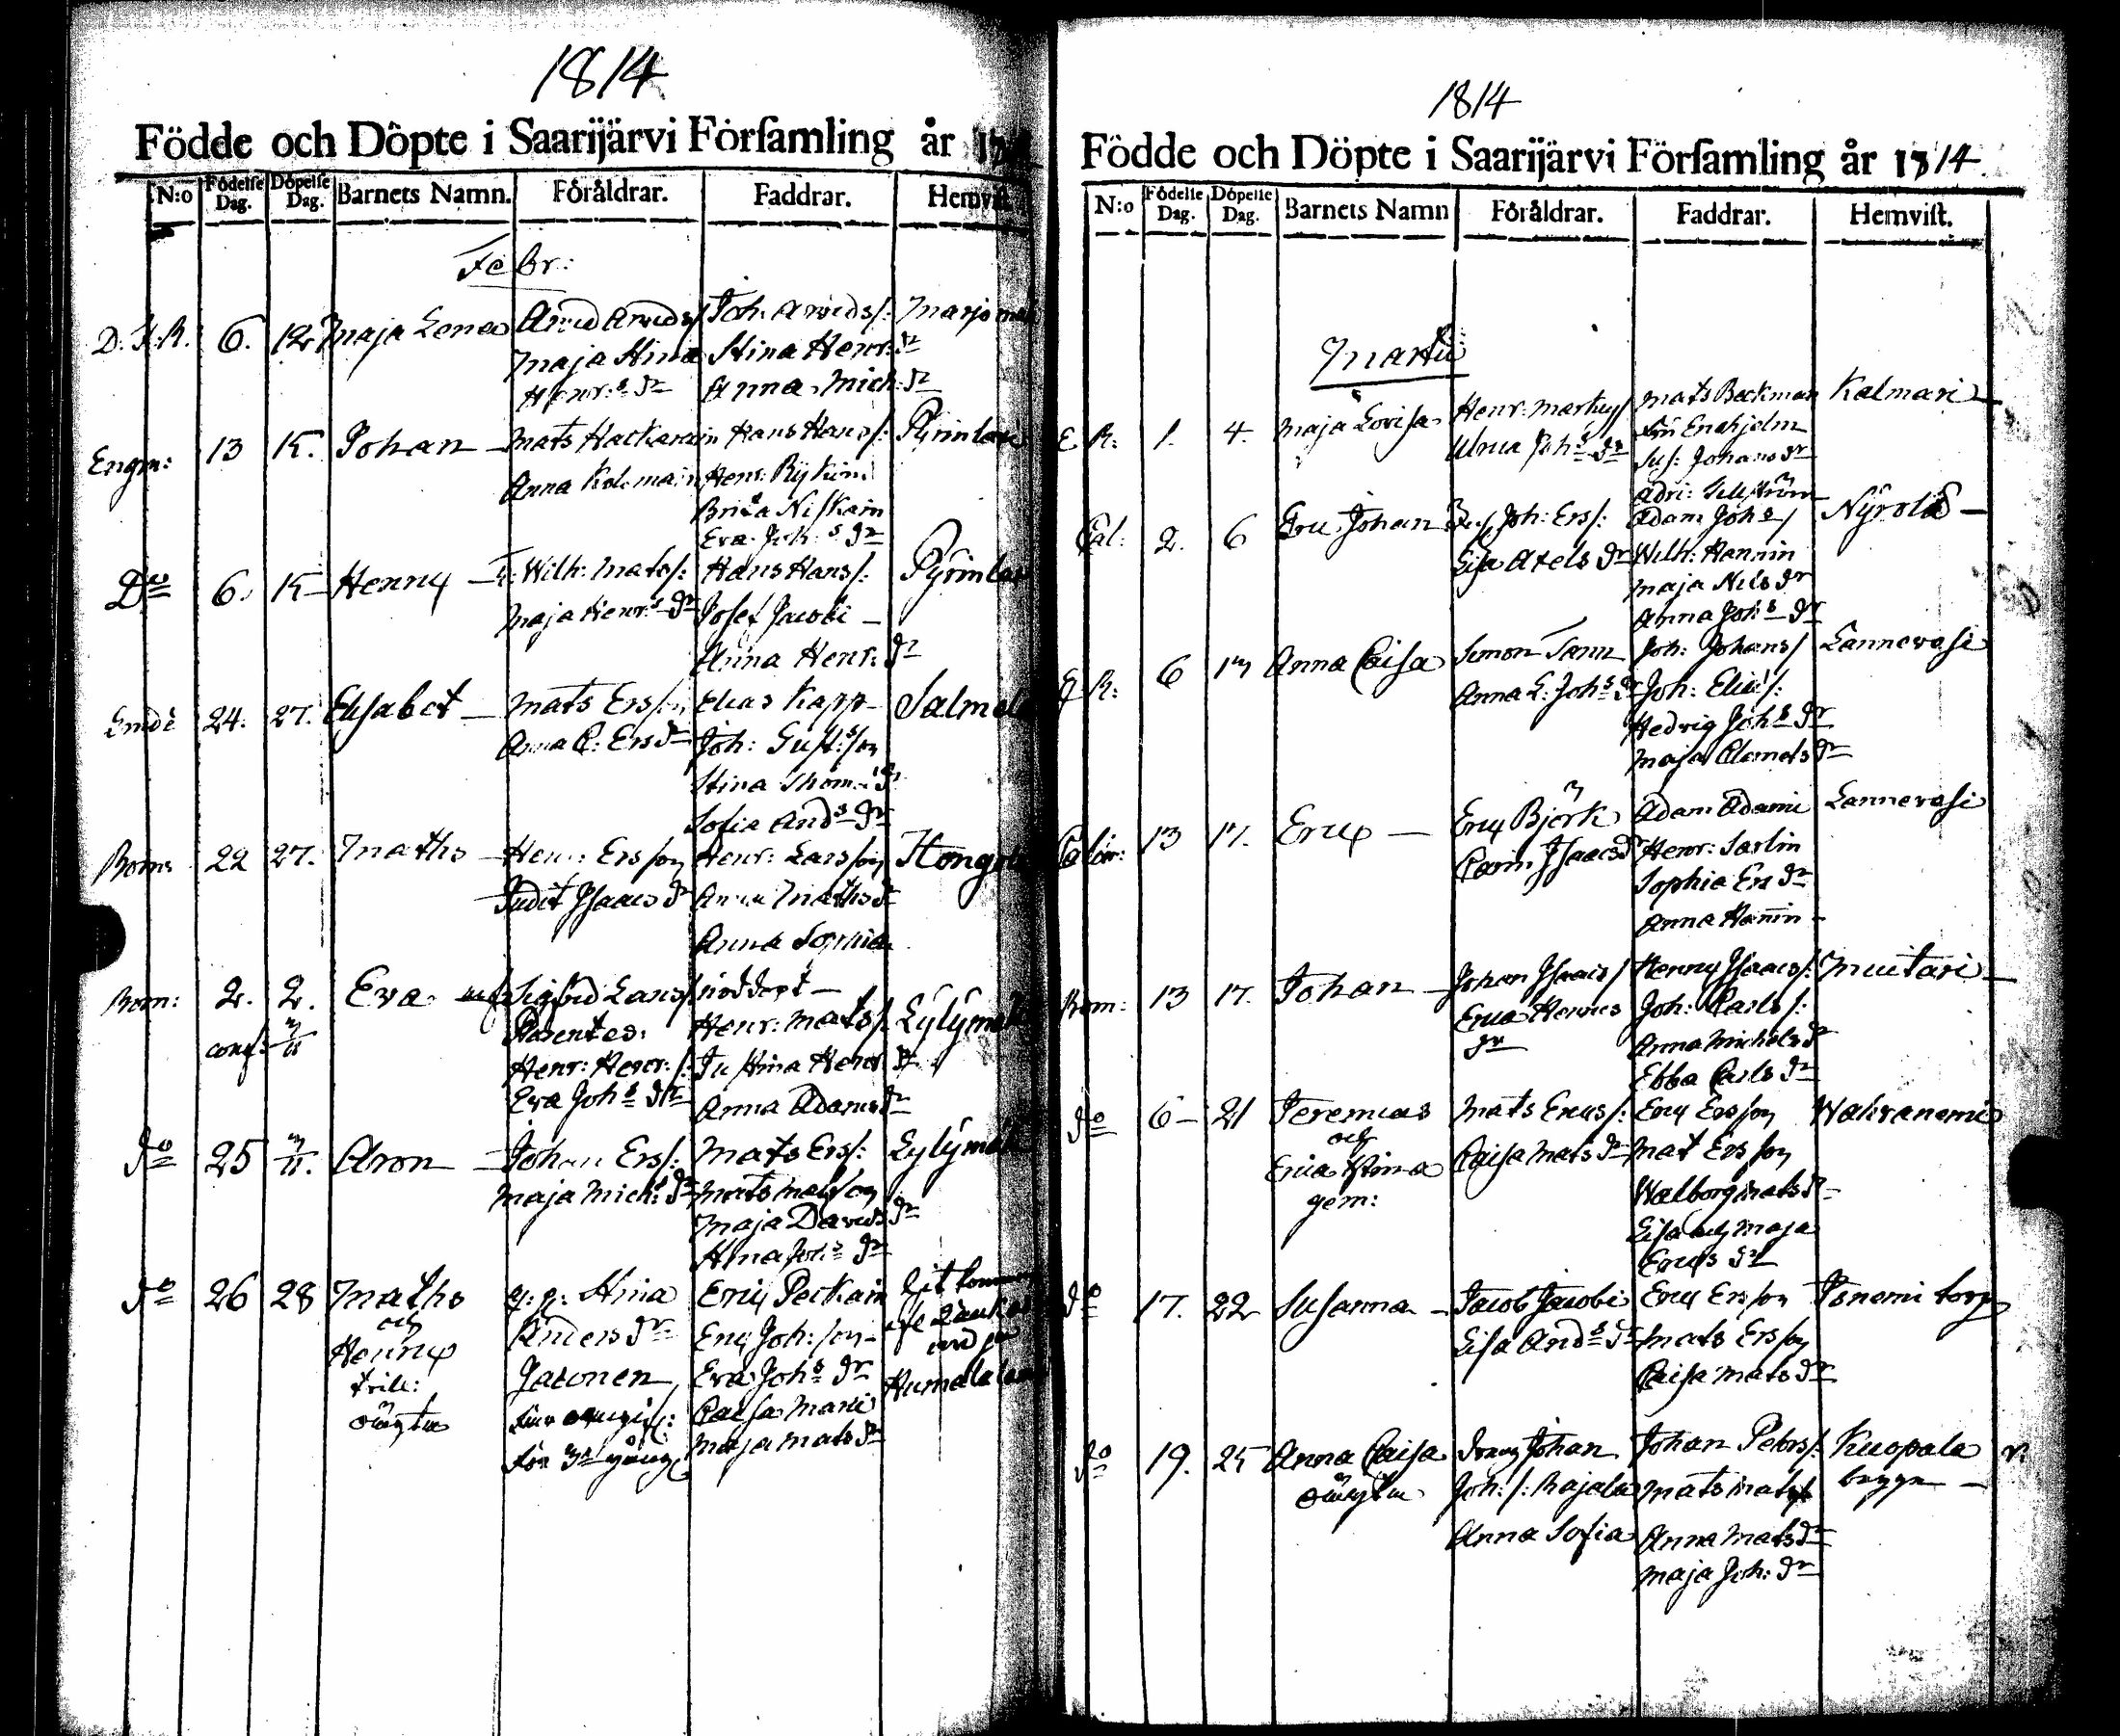 1814
Födde och Döpte i Saarijärvi Församling år
N:o Födelse Dag. Döpelse Dag. Barnets Namn. Föräldrar. Faddrar. Hemvist.
Febr:
D. F. R. 6. 12 Maja Lena Arvid Arvids/ Joh. Arvids/: Marjoma
Maja Stina Stina Henr: dr
Henr:s dr Anna Mich: dr
Engm: 13 15. Johan — Mats Hackarain Hans Hans/: Pyrinlax
Anna Kolemain Henr: Rykin
Brita Niskain
Eva Joh:s dr
Do 6. 15 — Henry — Wilh: Mats/: Hans Hans/: Pyrinlax
Maja Henr:s dr Josef Jacobi —
Anna Henr: dr
24. 27. Elisabet — Mats Ersson Elias Kapp — Salmela
Anna C: Ers dr Joh: Gust:s son
Stina Thom: dr
Sofia And:s dr
Bom: 22 27. Maths — Henr: Ersson Henr: Larsson
Judit Isaacs dr Anna Maths dr
Anna Sophia
Bom: 2. 2. Eva Sigfrid Lars/ nöddöpt —
conf: Parentes: Henr: Mats/: Lylymäki
Henr: Henr:/: Justina Henr dr
Eva Joh:s dr Anna Adams dr
do 25 Aron — Johan Ers/: Mats Ers/: Lylymäki
Maja Mich: dr Mats Matsson
Maja Davids dr
Stina Joh:s dr
do 26 28 Maths q. p: Stina Eric Peckain
och Anders dr Eric Joh:son —
Henric Jatonen Eva Joh:s dr Humalalam
trill: Caisa Mari
oäkta för 3dje gång Maja Mats dr
1814
Födde och Döpte i Saarijärvi Församling år 1814
N:o Födelse Dag. Döpelse Dag. Barnets Namn Föräldrar. Faddrar. Hemvist.
Martii
E R: 1. 4. Maja Lovisa Henr: Markus/ Mats Beckman Kalmari
Ulrica Joh:s dr Fru Enehjelm
Sus: Johans dr
Adri: Sellström
Cal: 2. 6 Eric Johan Joh: Ers/: Adam Joh:s/ Nyrölä —
Lisa Axels dr Wilh: Hannin
Maja Nils dr
Anna Joh:s dr
R: 6 13 Anna Caisa Simon Tann Joh: Johans/ Lannevesi
Anna L: Joh:s dr Joh: Elias/:
Hedvig Joh:s dr
Maja Clemets dr
13 17. Eric — Eric Björk Adam Adami Lannevesi
Carin Isaacs dr Henr: Sarlin
Sophia Ers dr
Anna Hanin —
Bom: 13 17. Johan — Johan Isaacs/ Henry Isaacs/: Muitari
Erica Henrics Joh: Carls/:
dr Anna Michels dr
Ebba Carls dr
do 6 — 21 Jeremias Mats Erics/: Eric Ersson Wahvanemi
och Caisa Mats dr Mat Ersson
Erica Stina Walborg Mats dr
gem: Lisa och Maja
Erics dr
do 17. 22 Susanna — Jacob Jacobi Eric Ersson Isnemi torp
Lisa And:s dr Mats Ersson
Caisa Mats dr
do 19. 25 Anna Caisa Dräng Johan Johan Peters/: Kuopala
oäkta Joh:/: Rajala Mats Mats/
Anna Sofia Anna Mats dr
Maja Joh: dr